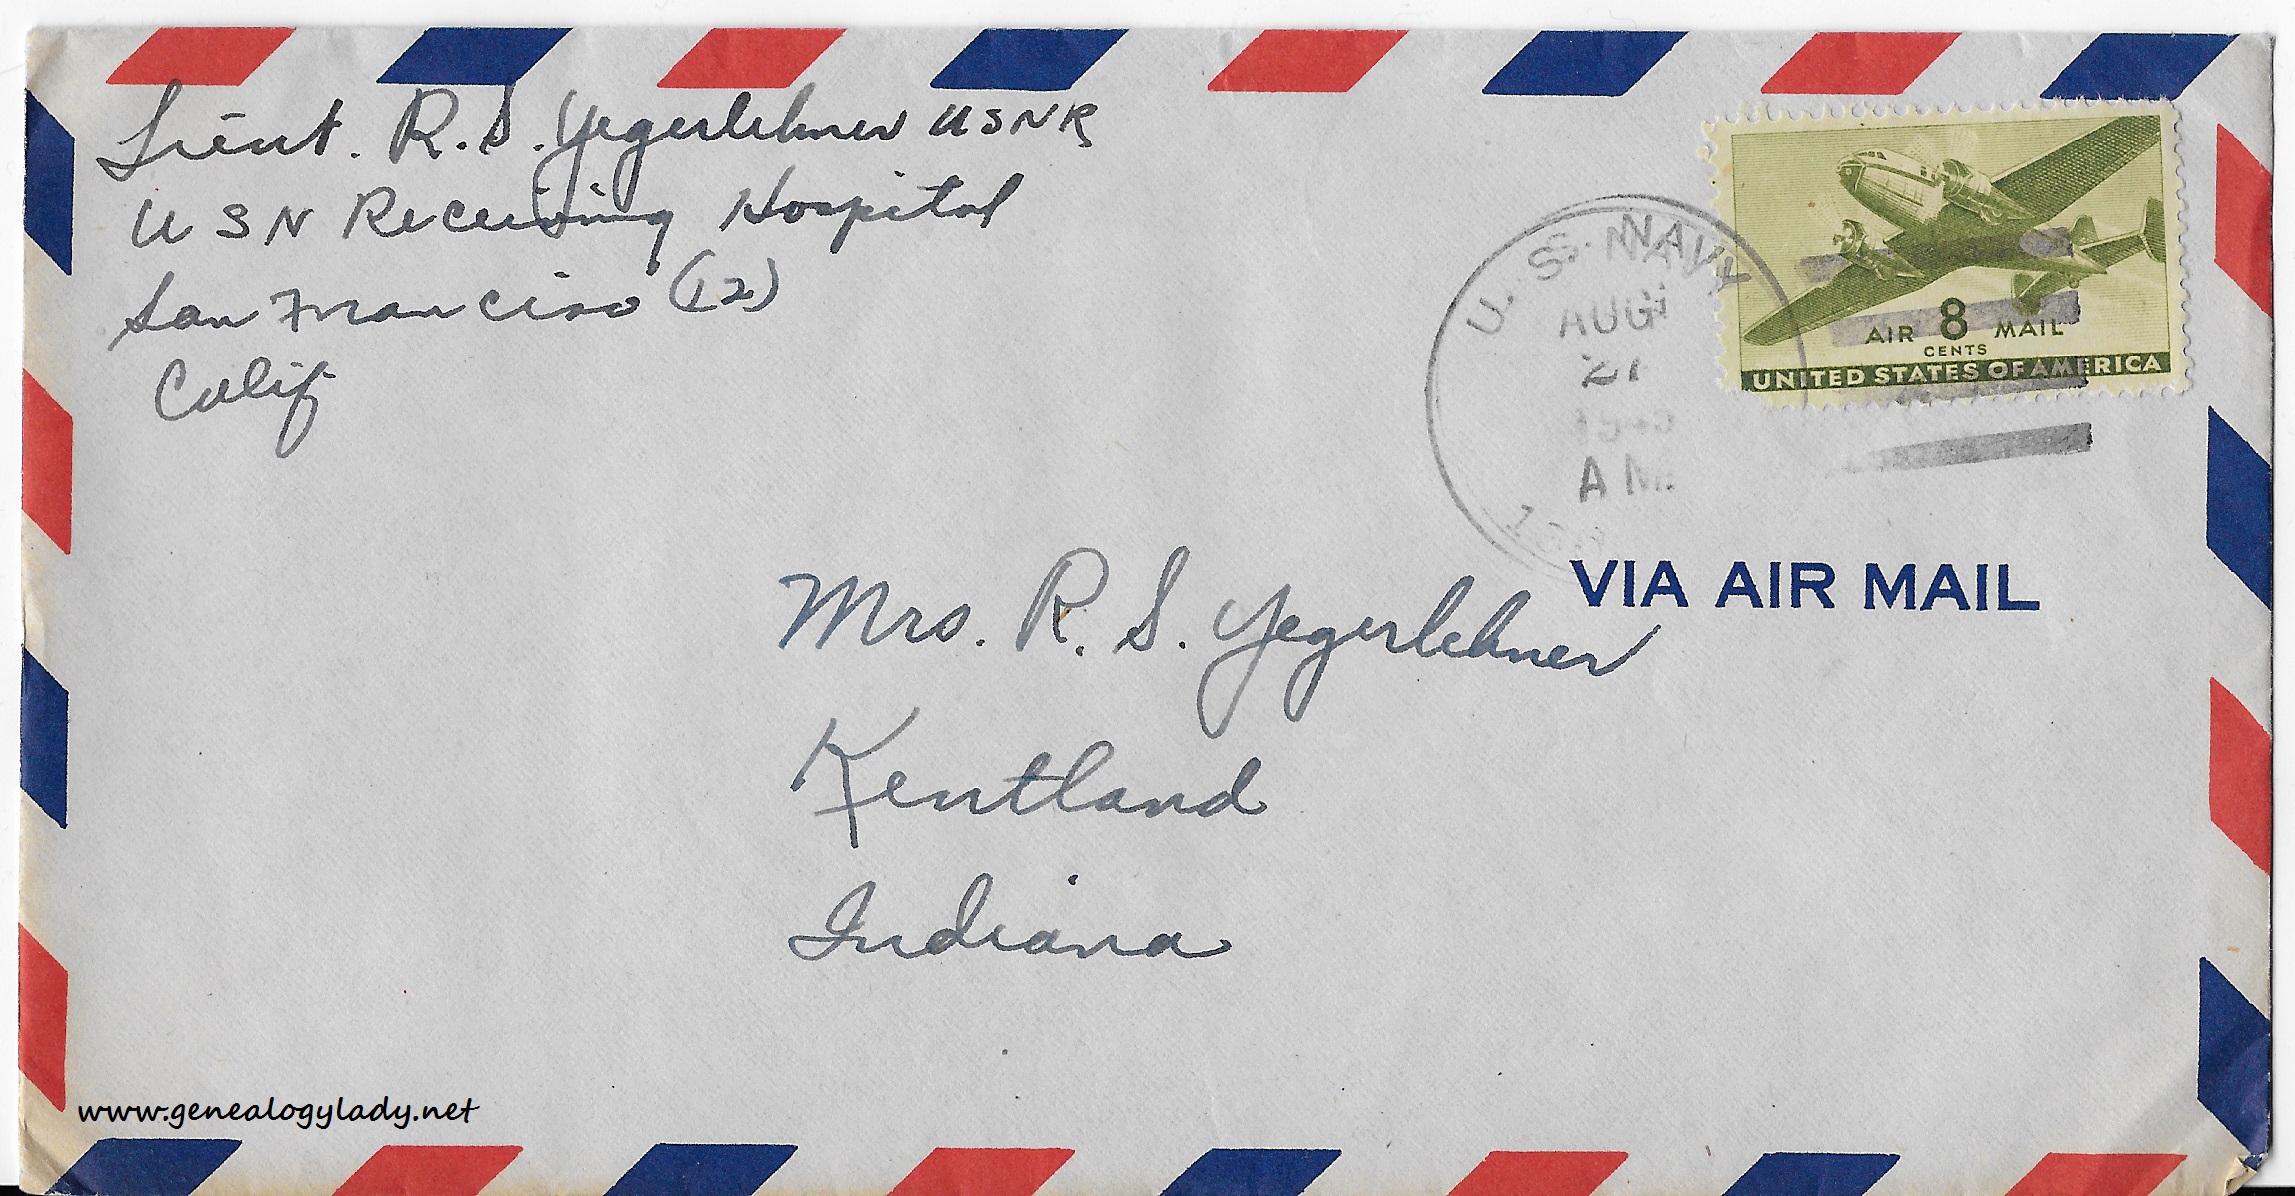 Lieut. R. S. Yegerlehner USNR
USN Receiving Hospital
San Francisco (12)
Calif
U. S. NAVY
AUG
21
A M.
AIR 8 MAIL
CENTS
UNITED STATES OF AMERICA
VIA AIR MAIL
Mrs. R. S. Yegerlehner
Kentland
Indiana
www.genealogylady.net